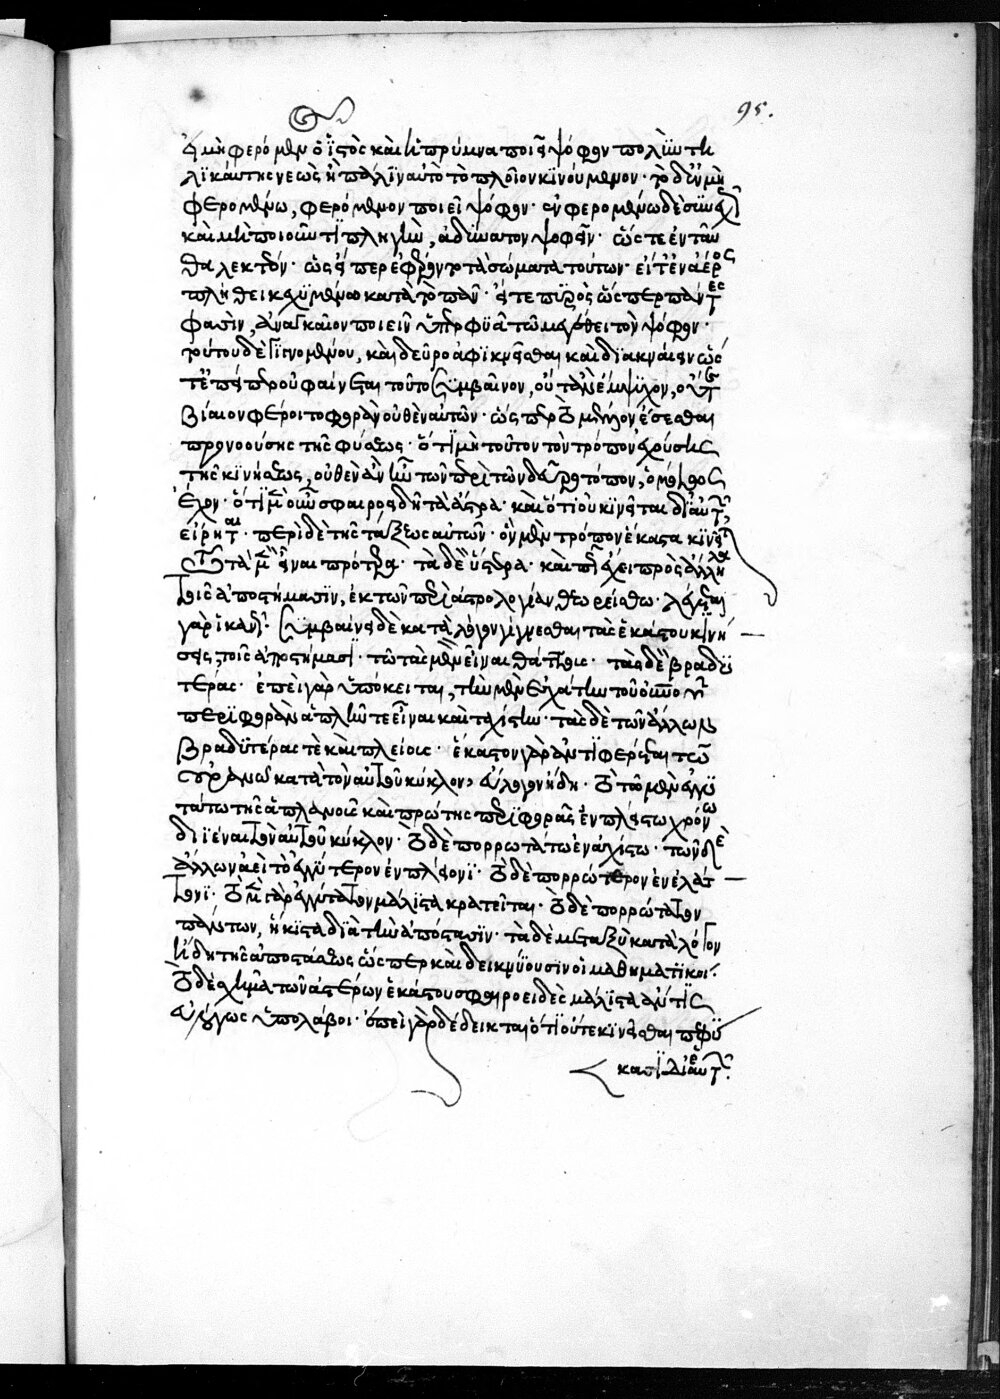 ἐν μὴ φερομένω ὁ ἱστὸς καὶ ἡ πρύμνα ποιεῖ ψόφον πολὺν τη
λικαύτης νεὼς, ἢ πάλιν αὐτὸ τὸ πλοῖον κινούμενον· τὸ δ' ἐν μὴ
φερομένω, φερόμενον ποιεῖ ψόφον· ἐν φερομένω δὲ συνεχεῖ
καὶ μὴ ποιοῦντι πληγὴν, ἀδύνατον ψοφεῖν· ὥστε ἐνταῦ
θα λεκτέον· ὡς εἴπερ ἐφέροντο τὰ σώματα τούτων· εἴτ' ἐν ἀέρος
πλήθει κεχυμένω κατὰ τὸ πᾶν· εἴτε πυρὸς ὥσπερ πάντες
φασὶν, ἀναγκαῖον ποιεῖν ὑπερφυᾶ τῶ μεγέθει τὸν ψόφον·
τούτου δὲ γιγνομένου, καὶ δεῦρο ἀφικνεῖσθαι καὶ διακναίειν ὥσ
τε ἐπείπερ οὐ φαίνεται τοῦτο συμβαῖνον, οὔτ' ἂν ἔμψυχον, οὔτε
βίαιον φέροιτο φορὰν οὐθὲν αὐτῶν· ὥσπερ τὸ μέλλον ἔσεσθαι
προνοούσης τῆς φύσεως· ὅτι μὴ τοῦτον τὸν τρόπον ἐχούσης
τῆς κινήσεως, οὐθὲν ἂν ἦν τῶν περὶ τὸν δεῦρο τόπον, ὁμοίως
ἔχον· ὅτι μὲν οὖν σφαιροειδῆ τὰ ἄστρα· καὶ ὅτι οὐ κινεῖται δι' αὑτῶν,
εἴρηται· περὶ δὲ τῆς τάξεως αὐτῶν· ὃν μὲν τρόπον ἕκαστα κινεῖται
τῶ τὰ μὲν εἶναι πρότερα· τὰ δὲ ὕστερα· καὶ πῶς ἔχει πρὸς ἄλληλα
τοῖς ἀποστήμασιν, ἐκ τῶν περὶ ἀστρολογίαν θεωρείσθω· λέγεται
γὰρ ἱκανῶς· συμβαίνει δὲ κατὰ λόγον γίγνεσθαι τὰς ἑκάστου κινή
σεις, τοῖς ἀποστήμασι· τῶ τὰς μὲν εἶναι θάττους· τὰς δὲ βραδυ
τέρας· ἐπεὶ γὰρ ὑπόκειται, τὴν μὲν ἐσχάτην τοῦ οὐρανοῦ
περιφορὰν ἁπλῆν τε εἶναι καὶ ταχίστην· τὰς δὲ τῶν ἄλλων
βραδυτέρας τὲ καὶ πλείους· ἕκαστον γὰρ ἀντιφέρεται τῶ
οὐρανῶ κατὰ τὸν αὑτοῦ κύκλον, εὔλογον ἤδη· τὸ μὲν ἐγγυ
τάτω τῆς ἁπλανοῦς καὶ πρώτης περιφορᾶς ἐν πλείστω χρόνω
διϊέναι τὸν αὑτοῦ κύκλον· τὸ δὲ πορρωτάτω ἐν ἐλαχίστω· τῶν δὲ
ἄλλων ἀεὶ τὸ ἐγγύτερον ἐν πλείονι· τὸ δὲ πορρώτερον ἐν ἐλάτ
τονι· τὸ μὲν γὰρ ἐγγύτατον μάλιστα κρατεῖται· τὸ δὲ πορρώτατον
πάντων, ἥκιστα διὰ τὴν ἀπόστασιν· τὰ δὲ μεταξὺ κατὰ λόγον
ἤδη τῆς ἀποστάσεως ὥσπερ καὶ δεικνύουσιν οἱ μαθηματικοί·
τὸ δὲ σχῆμα τῶν ἀστέρων ἑκάστου σφαιροειδὲς μάλιστα ἄν τις
εὐλόγως ὑπολάβοι· ἐπεὶ γὰρ δέδεικται ὅτι οὔτε κινεῖσθαι πεφύ
κασι δι' αὑτῶν·